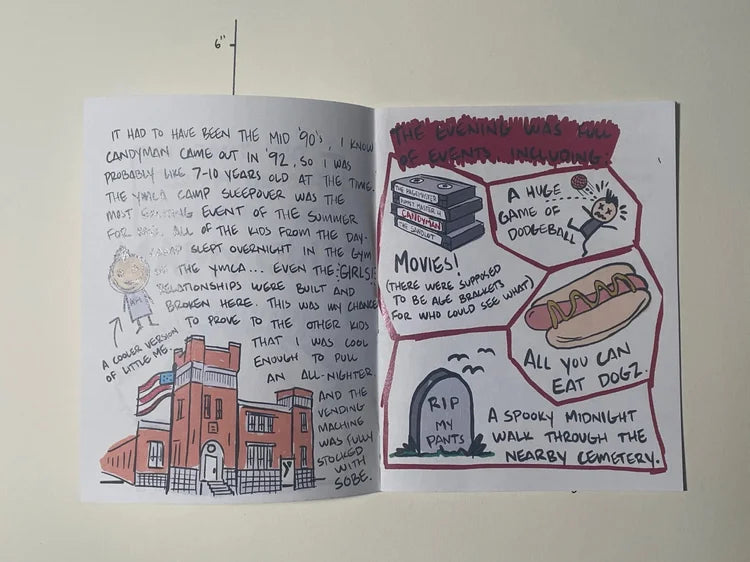 6"
IT HAD TO HAVE BEEN THE MID '90's, I KNOW
CANDYMAN CAME OUT IN '92, SO I WAS
PROBABLY LIKE 7-10 YEARS OLD AT THE TIME.
THE YMCA CAMP SLEEPOVER WAS THE
MOST EXCITING EVENT OF THE SUMMER
FOR ALL OF THE KIDS FROM THE DAY-
CAMP SLEPT OVERNIGHT IN THE GYM
OF THE YMCA... EVEN THE GIRLS!
RELATIONSHIPS WERE BUILT AND
BROKEN HERE. THIS WAS MY CHANCE
TO PROVE TO THE OTHER KIDS
THAT I WAS COOL
ENOUGH TO PULL
AN ALL-NIGHTER.
AND THE
VENDING
MACHINE
WAS FULLY
STOCKED
WITH
SOBE.
A COOLER VERSION
OF LITTLE ME
Y
THE EVENING WAS FULL
OF EVENTS, INCLUDING:
THE PAGEMASTER
PUPPET MASTER 4
CANDYMAN
THE SANDLOT
MOVIES!
(THERE WERE SUPPOSED
TO BE AGE BRACKETS
FOR WHO COULD SEE WHAT)
A HUGE
GAME OF
DODGEBALL
ALL YOU CAN
EAT DOGZ.
RIP
MY
PANTS
A SPOOKY MIDNIGHT
WALK THROUGH THE
NEARBY CEMETERY.